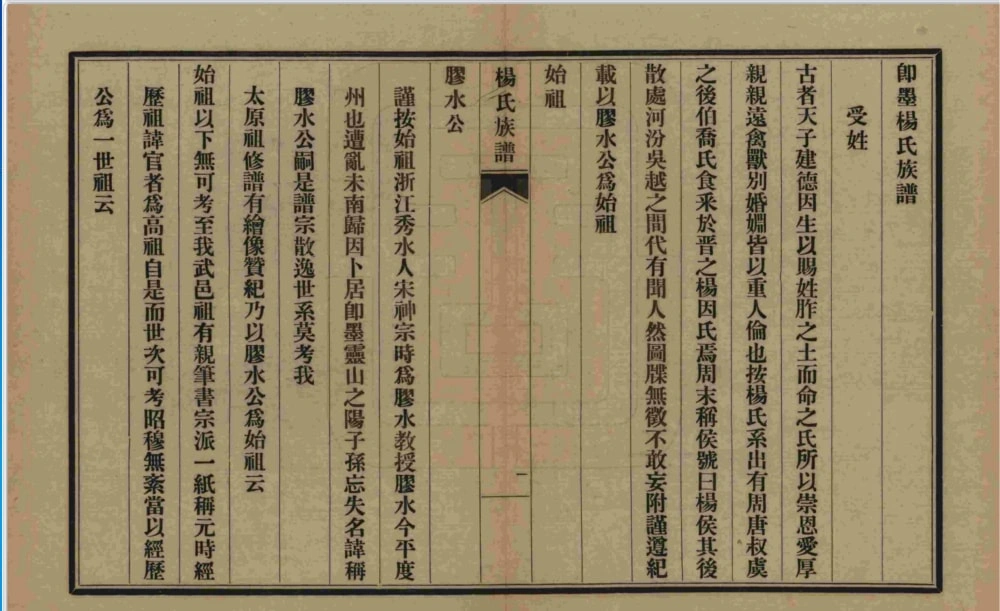 卽墨楊氏族譜
受姓
古者天子建德因生以賜姓胙之土而命之氏所以崇恩愛厚
親親遠禽獸別婚嫺皆以重人倫也按楊氏系出有周唐叔虞
之後伯喬氏食釆於晋之楊因氏焉周末稱侯號曰楊侯其後
散處河汾吳越之間代有聞人然圖牒無徵不敢妄附謹遵紀
載以膠水公爲始祖
始祖
楊氏族譜 一
膠水公
謹按始祖浙江秀水人宋神宗時爲膠水教授膠水今平度
州也遭亂未南歸因卜居卽墨靈山之陽子孫忘失名諱稱
膠水公嗣是譜宗散逸世系莫考我
太原祖修譜有繪像贊紀乃以膠水公爲始祖云
始祖以下無可考至我武邑祖有親筆書宗派一紙稱元時經
歷祖諱官者爲高祖自是而世次可考昭穆無紊當以經歷
公爲一世祖云